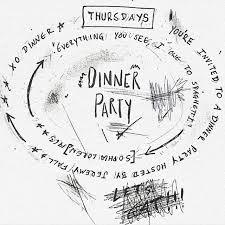 THURSDAYS
YOU'RE INVITED TO A DINNER PARTY HOSTED BY JEREMY FALL
XO DINNER
"EVERYTHING YOU SEE, I OWE TO SPAGHETTI."
[SOPHIA LOREN]
DINNER
PARTY
LET'S
EAT!